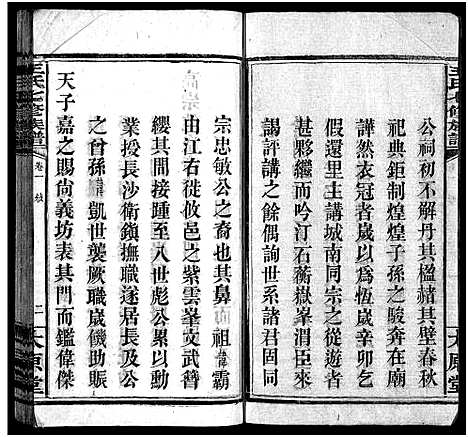 王氏七修族譜
公祠初不解丹其楹赭其壁春秋
祀典鉅制煌煌子孫之駿奔在廟
譁然衣冠者歲以為常辛卯乞
假還里主講城南同宗之從遊者
甚夥繼而吟汀石蘅嶽峯渭臣來
謁評講之餘偶詢世系諸君固同
太原堂
宗忠敏公之裔也其鼻祖諱霸
由江右徙攸邑之紫雲峯文武簪
纓其間踵至八世彪公累以動
業授長沙衛鎮撫職遂居長及公
之曾孫諱凱世襲厥職歲儀助賑
天子嘉之賜尙義坊表其門而鑑偉傑
王氏七修族譜
卷一
二
太原堂